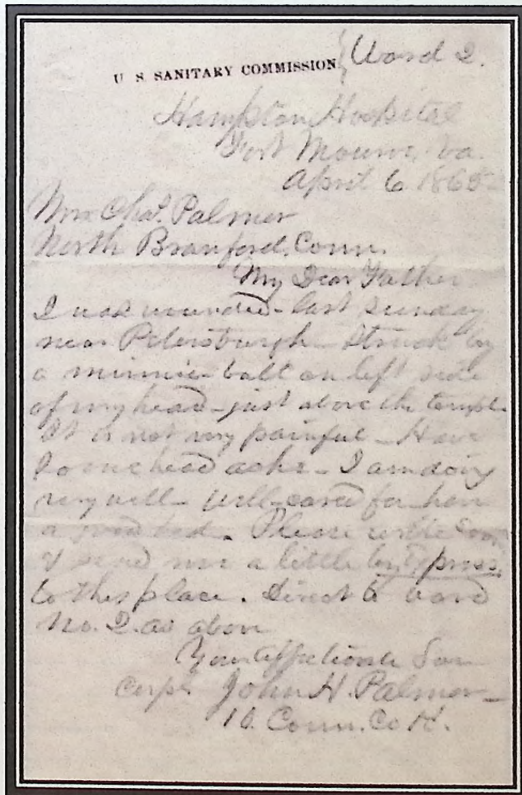 U. S. SANITARY COMMISSION } Ward 2.
Hampton Hospital
Fort Monroe, Va.
April 6 1865
Mr Chas. Palmer
North Branford, Conn.
My Dear Father
I was wounded last Sunday
near Petersburgh - Struck by
a minnie ball on left side
of my head - just above the temple
It is not very painful - Have
Some head ache - I am doing
very well - well cared for have
a good bed. Please write soon
& send me a little by Express
to this place. Direct to ward
No. 2. as above
Your affectionate Son
Corpl John H. Palmer -
10. Conn. Co H.